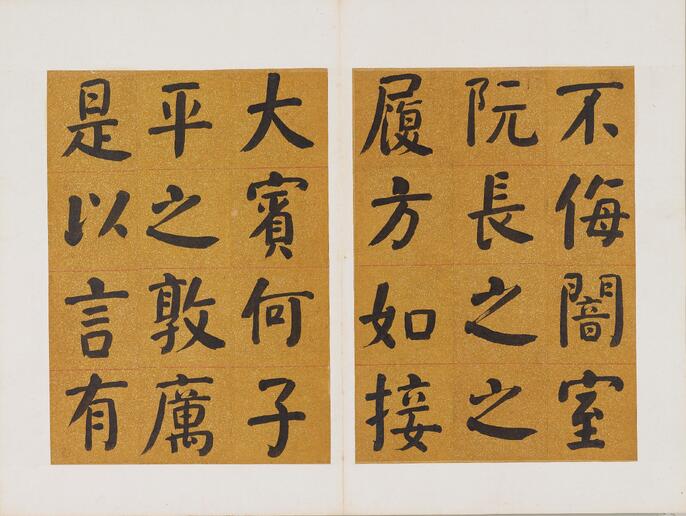 不侮闇室
阮長之之
履方如接
大賓何子
平之敦厲
是以言有